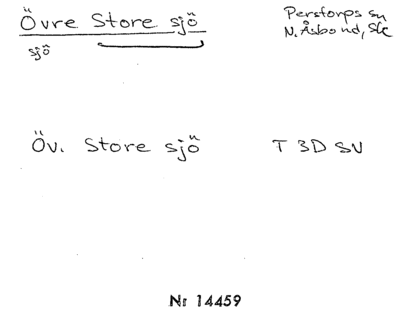 Övre Store sjö
Perstorps sn
sjö
N. Åsbo hd, Sk
Öv. Store sjö
T 3D SV
Nr 14459